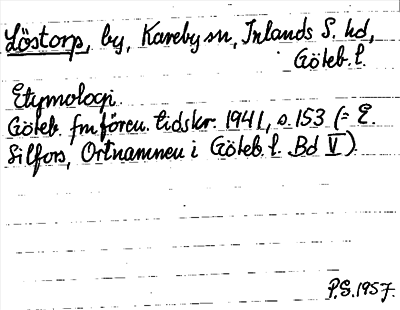 Löstorp, by, Kareby sn, Inlands S. hd,
Göteb. l.
Etymologi
Göteb. fmfören. tidskr. 1941, s. 153 (= E.
Silfors, Ortnamnen i Göteb. l. Bd V).
P.S. 1957.